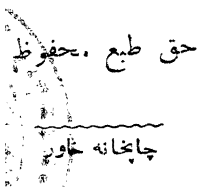 حق طبع محفوظ
چاپخانه خاور